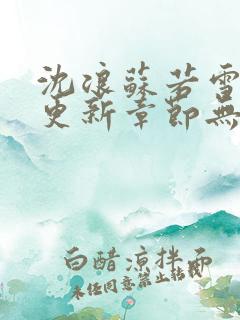 沈浪蘇若雪
更新章節無
白醋涼拌面
未任同意禁止轉載